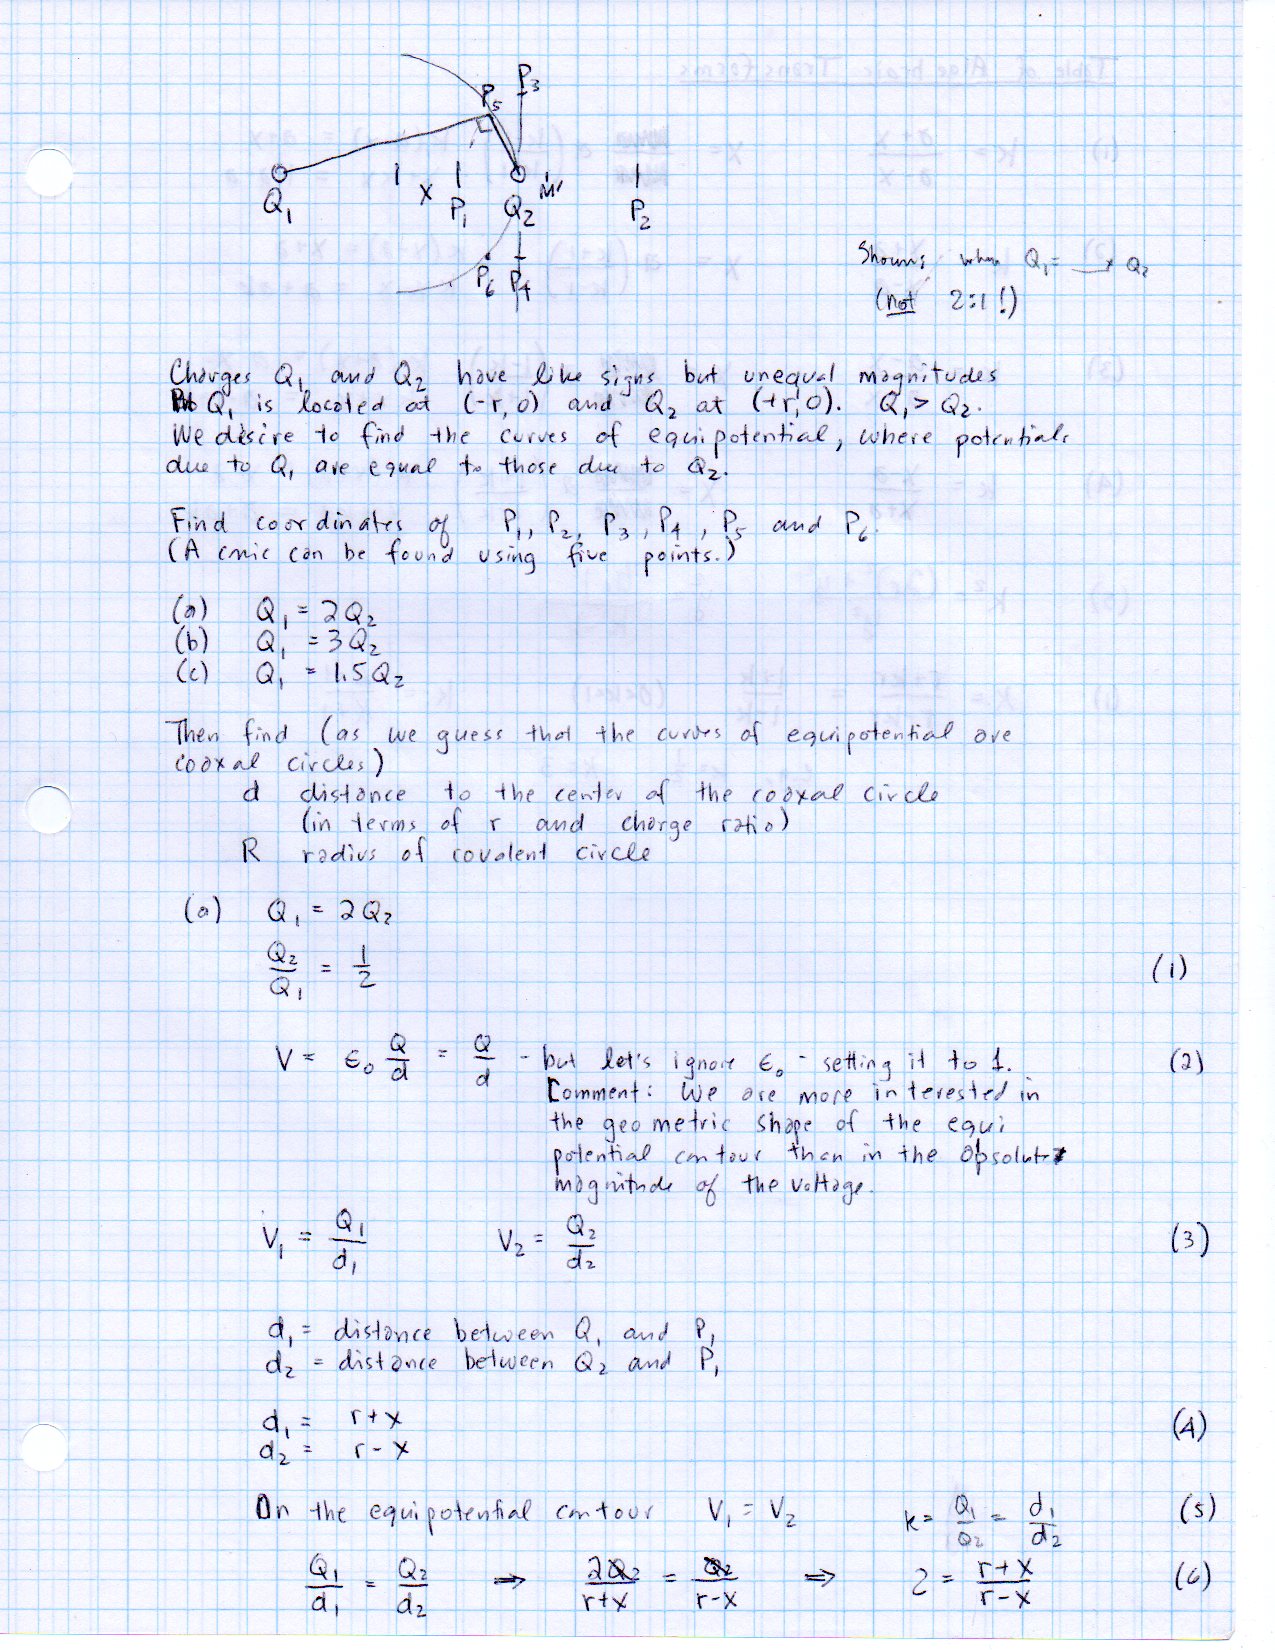 P3
P5
Q1 X P1 Q2 M' P2
P6 P4
Shown: when Q1 = Q2
(not 2:1!)
Charges Q1 and Q2 have like signs but unequal magnitudes
Q1 is located at (-r, 0) and Q2 at (+r, 0). Q1 > Q2.
We desire to find the curves of equipotential, where potentials
due to Q1 are equal to those due to Q2.
Find coordinates of P1, P2, P3, P4, P5 and P6.
(A conic can be found using five points.)
(a) Q1 = 2Q2
(b) Q1 = 3Q2
(c) Q1 = 1.5Q2
Then find (as we guess that the curves of equipotential are
coaxal circles)
d distance to the center of the coaxal circle
(in terms of r and charge ratio)
R radius of covalent circle
(a) Q1 = 2Q2
Q2/Q1 = 1/2 (1)
V = ϵ0 Q/d = Q/d - but let's ignore ϵ0 - setting it to 1. (2)
Comment: We are more interested in
the geometric shape of the equi
potential contour than in the absolute
magnitude of the voltage.
V1 = Q1/d1 V2 = Q2/d2 (3)
d1 = distance between Q1 and P1
d2 = distance between Q2 and P1
d1 = r+x (4)
d2 = r-x
On the equipotential contour V1 = V2 k = Q1/Q2 = d1/d2 (5)
Q1/d1 = Q2/d2 ⇒ 2Q2/r+x = Q2/r-x ⇒ 2 = r+x/r-x (6)